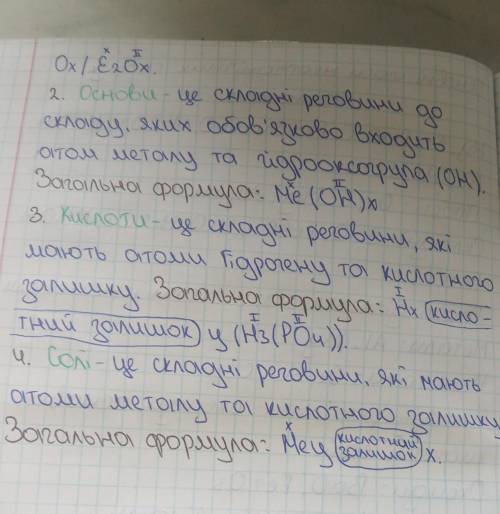 Ox / Ɛ₂Oₓ.
2. Основи - це складні реговини до
складу, яких обов'язково входить
атом металу та гідрооксогрупа (OH).
Загальна формула: Me(OH)x
3. Кислоти - це складні реговини, які
мають атоми Гідрогену та кислотного
залишку. Загальна формула: Hx кисло-
тний залишок y (H₃(PO₄)).
4. Солі - це складні реговини, які мають
атоми металу та кислотного залишку
Загальна формула: Mey кислотний
залишок x.